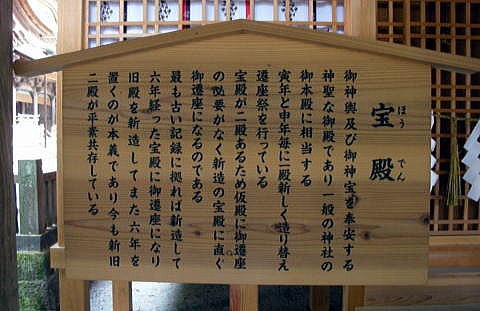 宝殿
ほうでん
御神輿及び御神宝を奉安する
神聖な御殿であり一般の神社の
御本殿に相当する
寅年と申年毎に一殿新しく造り替え
遷座祭を行っている
宝殿が二殿あるため仮殿に御遷座
の必要がなく新造の宝殿に直ぐ
御遷座になるのである
最も古い記録に拠れば新造して
六年経った宝殿に御遷座になり
旧殿を新造してまた六年を
置くのが本義であり今も新旧
二殿が平素共存している